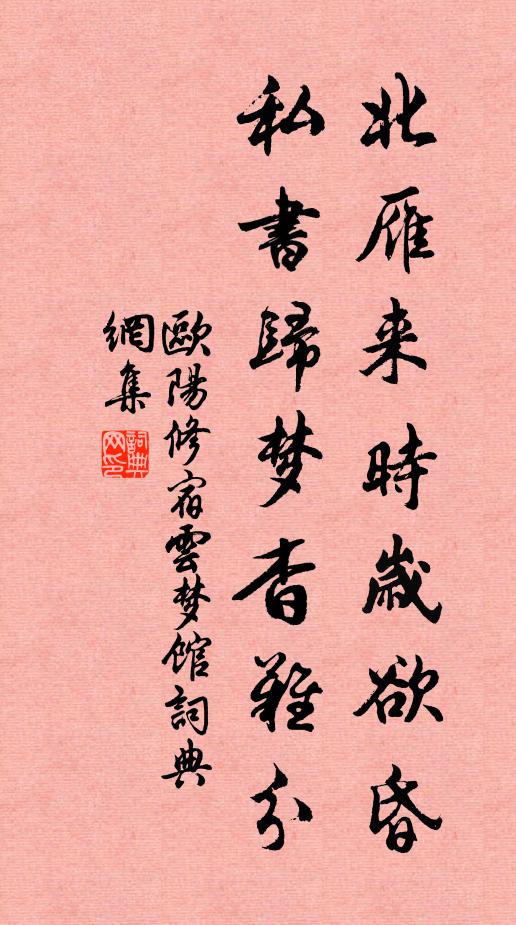 北雁来時歲欲昏
私書歸梦杳難分
歐陽修宿雲梦館詞典
網集
詞典网印